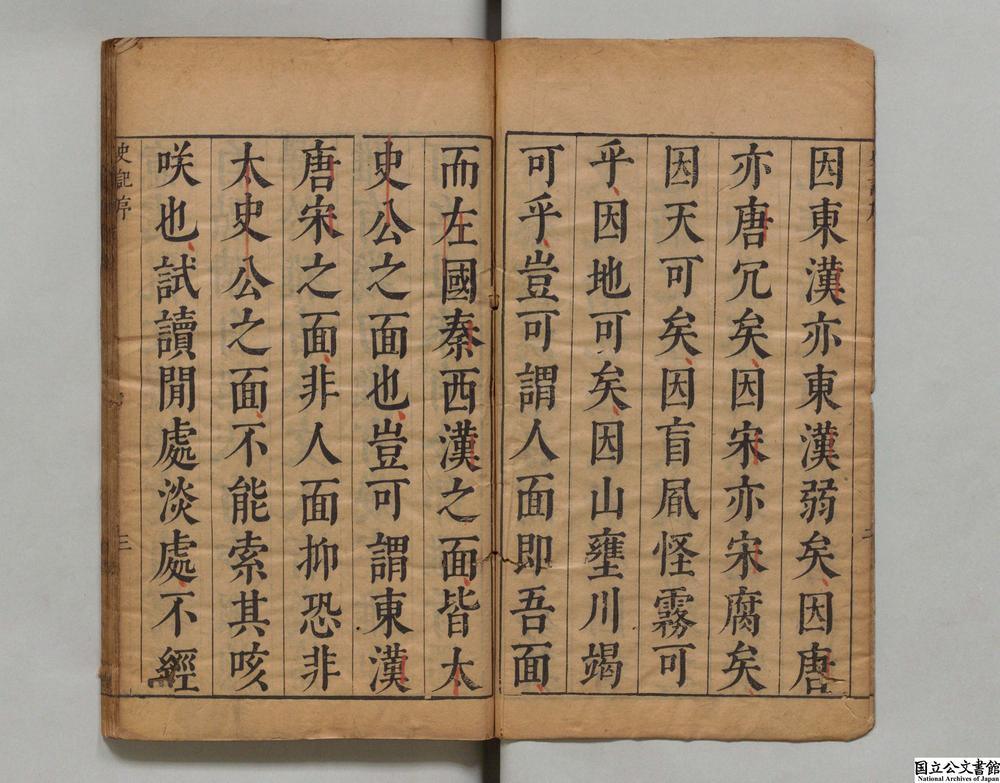 因東漢亦東漢弱矣因唐
亦唐冗矣因宋亦宋腐矣
因天可矣因盲凮怪霧可
乎因地可矣因山壅川竭
可乎豈可謂人面即吾面
而左國秦西漢之面皆太
史公之面也豈可謂東漢
唐宋之面非人面抑恐非
太史公之面不能索其咳
咲也試讀閒處淡處不經
史記序
三
国立公文書館
National Archives of Japan